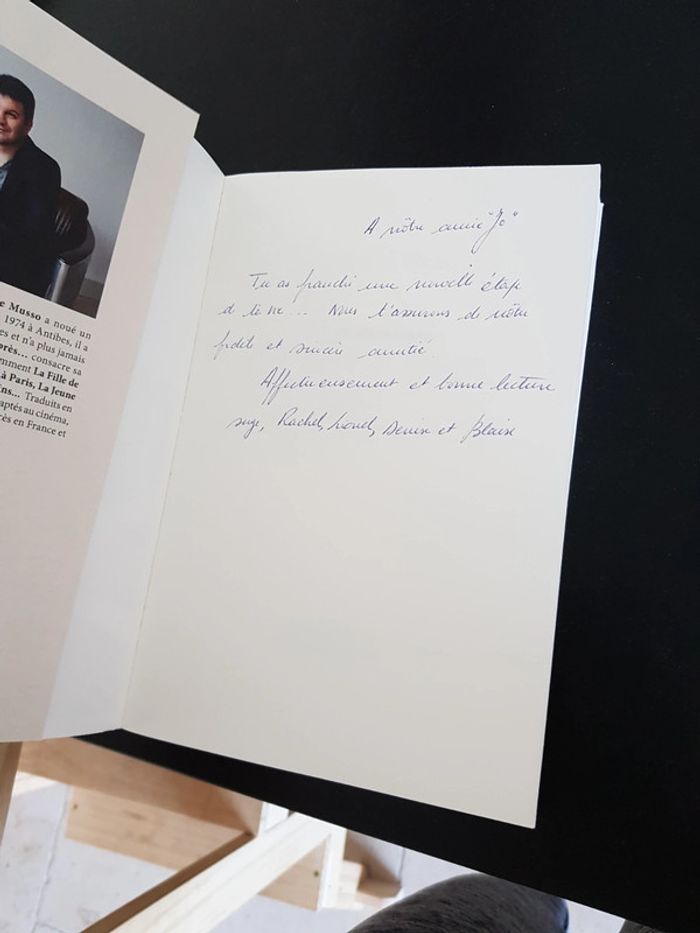 e Musso a noué un
1974 à Antibes, il a
es et n'a plus jamais
près... consacre sa
mment La Fille de
à Paris, La Jeune
ns... Traduits en
aptés au cinéma,
ès en France et
A nôtre amie "Jo"
Tu as franchi une nouvelle étape
de ta vie... Nous t'assurons de nôtre
fidèle et sincère amitié
Affectueusement et bonne lecture
Rachel, Lionel, Denise et Blaise